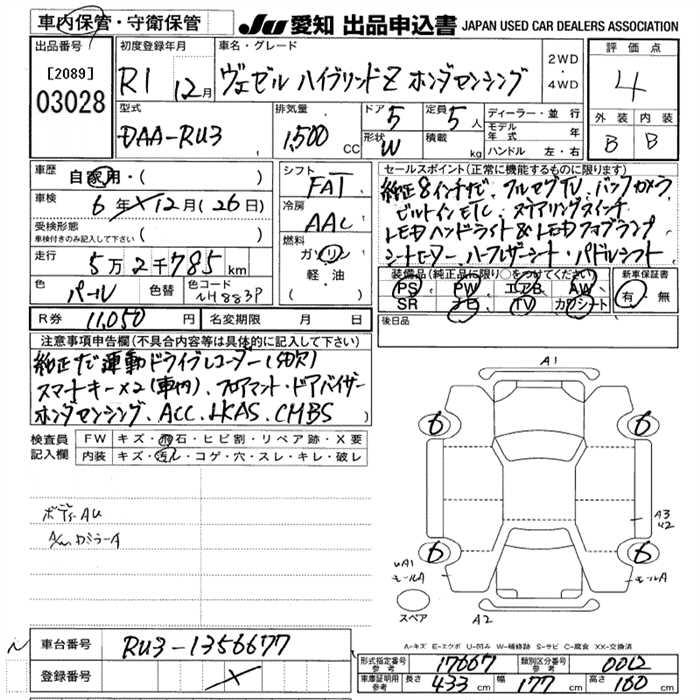 車内保管・守衛保管 JU 愛知 出品申込書 JAPAN USED CAR DEALERS ASSOCIATION
出品番号 [2089] 03028
初度登録年月 R1 12月
車名・グレード ヴェゼル ハイブリッドZ ホンダセンシング
2WD・4WD
評価点 4
外装 内装
B B
型式 DAA-RU3
排気量 1,500 CC
ドア 5 定員 5人
形状 W 積載 kg
ディーラー・並行
モデル年式 年
ハンドル 左・右
車歴 自家用・( )
車検 6年 12月(26日)
受検形態
車検付きのみ記入して下さい ( )
走行 5万2千785km
色 パール 色替 色コード NH883P
シフト FAT
冷房 AAC
燃料 ガソリン 軽・油
セールスポイント(正常に機能するものに限ります)
純正8インチナビ、フルセグTV、バックカメラ
ビルトインETC、ステアリングスイッチ
LEDヘッドライト&LEDフォグランプ
シートヒーター、ハーフレザーシート・パドルシフト
装備品(純正品に限り○をつけてください) 新車保証書
PS PW エアB AW 有・無
SR ナビ TV カワシート
後日品
R券 11,050円 名変期限 月 日
注意事項申告欄(不具合内容等は具体的に記入して下さい)
純正ナビ連動ドライブレコーダー(欠)
スマートキー×2(車内)、フロアマット・ドアバイザー
ホンダセンシング、ACC、LKAS、CMBS
検査員記入欄
FW キズ・飛石・ヒビ割・リペア跡・X要
内装 キズ・汚れ・コゲ・穴・スレ・キレ・破レ
ボデーAU
A1
6 6
A3
U2
6 6
UA1
モールA モールA
スペア
A2
A-キズ E-エクボ U-凹み W-補修跡 S-サビ C-腐食 XX-交換済
車台番号 RU3-1356677
登録番号
形式指定番号 参考 17667 類別区分番号 参考 0012
車庫証明用 参考 長さ 433cm 幅 177cm 高さ 160cm